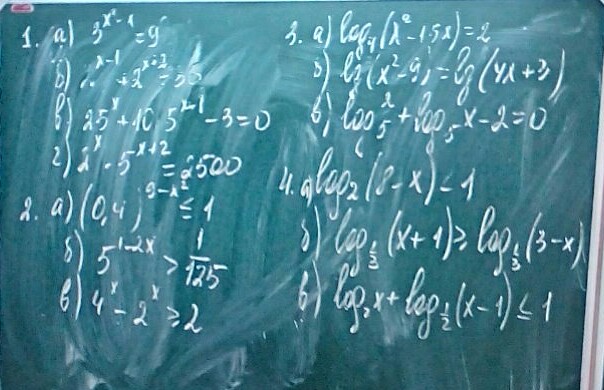 1. а) 3^(x²-1) = 9
б) 2^(x-1) + 2^(x+2) = 36
в) 25^x + 10·5^(x-1) - 3 = 0
г) 2^x · 5^(x+2) = 2500
2. а) (0,4)^(9-x²) ≤ 1
б) 5^(1-2x) > 1/125
в) 4^x - 2^x ≥ 2
3. а) log₄(x²-15x) = 2
б) lg(x²-9) = lg(4x+3)
в) log₅² x + log₅ x - 2 = 0
4. а) log₂(8-x) < 1
б) log_{1/3}(x+1) ≥ log_{1/3}(3-x)
в) log₂x + log_{1/2}(x-1) ≤ 1